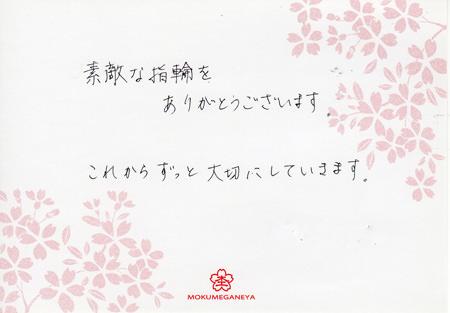 素敵な指輪を
ありがとうございます。
これからずっと大切にしていきます。
MOKUMEGANEYA